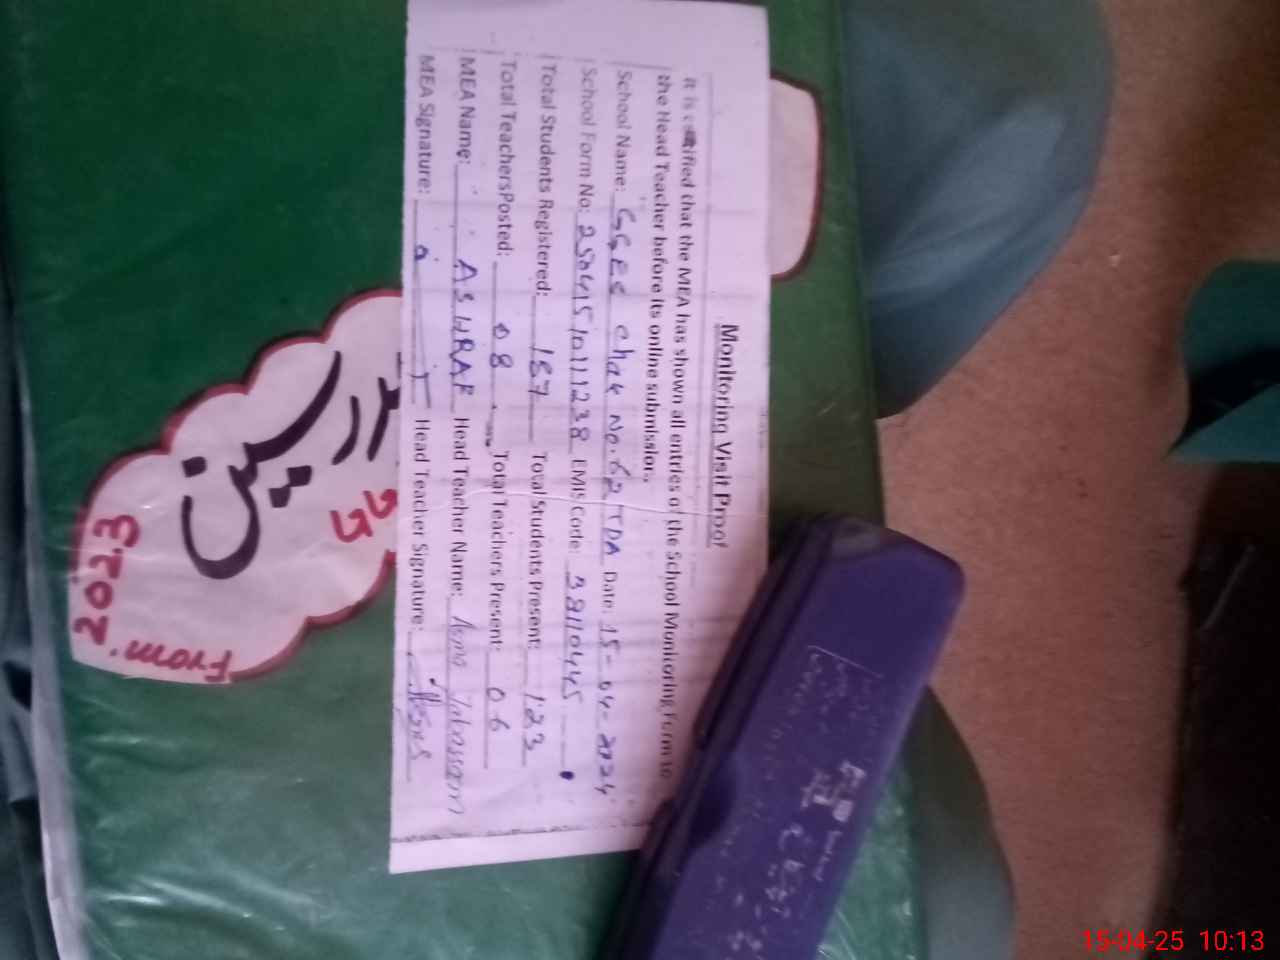 Monitoring Visit Proof
It is certified that the MEA has shown all entries of the School Monitoring Form to
the Head Teacher before its online submission.
School Name: GGES Chak No. 62 TDA Date: 15-04-2024
School Form No: 250415101111238 EMIS Code: 38110445
Total Students Registered: 187 Total Students Present: 123
Total Teachers Posted: 08 Total Teachers Present: 06
MEA Name: ASHRAF Head Teacher Name: Asma Tabassam
MEA Signature: Head Teacher Signature:
مدرسین
2023
From
15-04-25 10:13